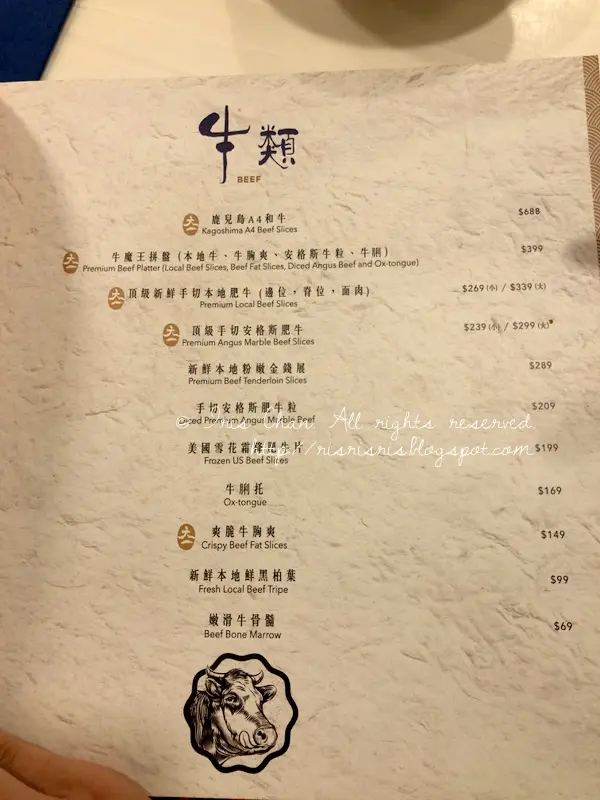 牛類
BEEF
鹿兒島A4和牛 $688
Kagoshima A4 Beef Slices
牛魔王拼盤 (本地牛、牛胸爽、安格斯牛粒、牛脷) $399
Premium Beef Platter (Local Beef Slices, Beef Fat Slices, Diced Angus Beef and Ox-tongue)
頂級新鮮手切本地肥牛 (邊位，脊位，面肉) $269 (小) / $339 (大)
Premium Local Beef Slices
頂級手切安格斯肥牛 $239 (小) / $299 (大)
Premium Angus Marble Beef Slices
新鮮本地粉嫩金錢展 $289
Premium Beef Tenderloin Slices
手切安格斯肥牛粒 $209
Diced Premium Angus Marble Beef
© Chan. All rights reserved.
美國雪花霜降肥牛片 $199
http://risrisris.blogspot.com
Frozen US Beef Slices
牛脷托 $169
Ox-tongue
爽脆牛胸爽 $149
Crispy Beef Fat Slices
新鮮本地鮮黑柏葉 $99
Fresh Local Beef Tripe
嫩滑牛骨髓 $69
Beef Bone Marrow